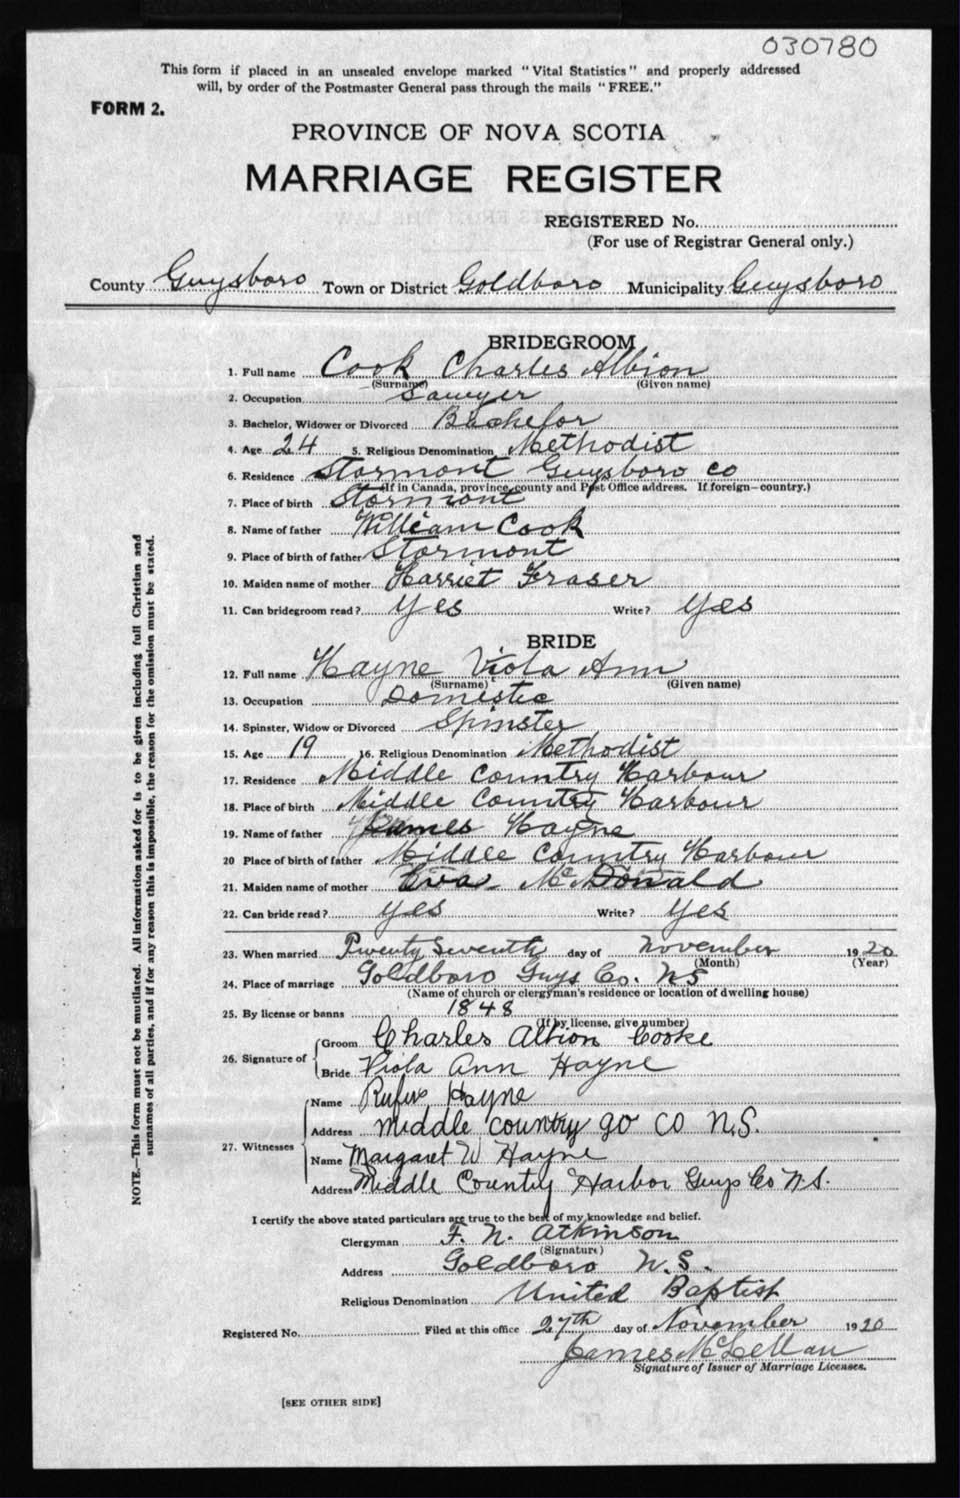 030780
This form if placed in an unsealed envelope marked "Vital Statistics" and properly addressed
will, by order of the Postmaster General pass through the mails "FREE."
FORM 2.
PROVINCE OF NOVA SCOTIA
MARRIAGE REGISTER
REGISTERED No.
(For use of Registrar General only.)
County Guysboro Town or District Goldboro Municipality Guysboro
BRIDEGROOM
1. Full name Cook Charles Albion
(Surname) (Given name)
2. Occupation Sawyer
3. Bachelor, Widower or Divorced Bachelor
4. Age 24 5. Religious Denomination Methodist
6. Residence Stormont Guysboro Co
(If in Canada, province, county and Post Office address. If foreign—country.)
7. Place of birth Stormont
8. Name of father William Cook
9. Place of birth of father Stormont
10. Maiden name of mother Harriet Fraser
11. Can bridegroom read? Yes Write? Yes
BRIDE
12. Full name Hayne Viola Ann
(Surname) (Given name)
13. Occupation Domestic
14. Spinster, Widow or Divorced Spinster
15. Age 19 16. Religious Denomination Methodist
17. Residence Middle Country Harbour
18. Place of birth Middle Country Harbour
19. Name of father James Hayne
20 Place of birth of father Middle Country Harbour
21. Maiden name of mother Eva McDonald
22. Can bride read? Yes Write? Yes
23. When married Twenty Seventh day of November 1920
(Month) (Year)
24. Place of marriage Goldboro Guys Co. NS
(Name of church or clergyman's residence or location of dwelling house)
25. By license or banns 1848
(If by license, give number)
26. Signature of
Groom Charles Albion Cooke
Bride Viola Ann Hayne
27. Witnesses
Name Rufus Hayne
Address middle country go CO N.S.
Name Margaret W Hayne
Address Middle Country Harbor Guys Co N.S.
I certify the above stated particulars are true to the best of my knowledge and belief.
Clergyman F. N. Atkinson
(Signature)
Address Goldboro N.S.
Religious Denomination United Baptist
Registered No. Filed at this office 27th day of November 1920
James McLellan
Signature of Issuer of Marriage Licenses.
[SEE OTHER SIDE]
NOTE.—This form must not be mutilated. All information asked for is to be given including full Christian and
surnames of all parties, and if for any reason this is impossible, the reason for the omission must be stated.